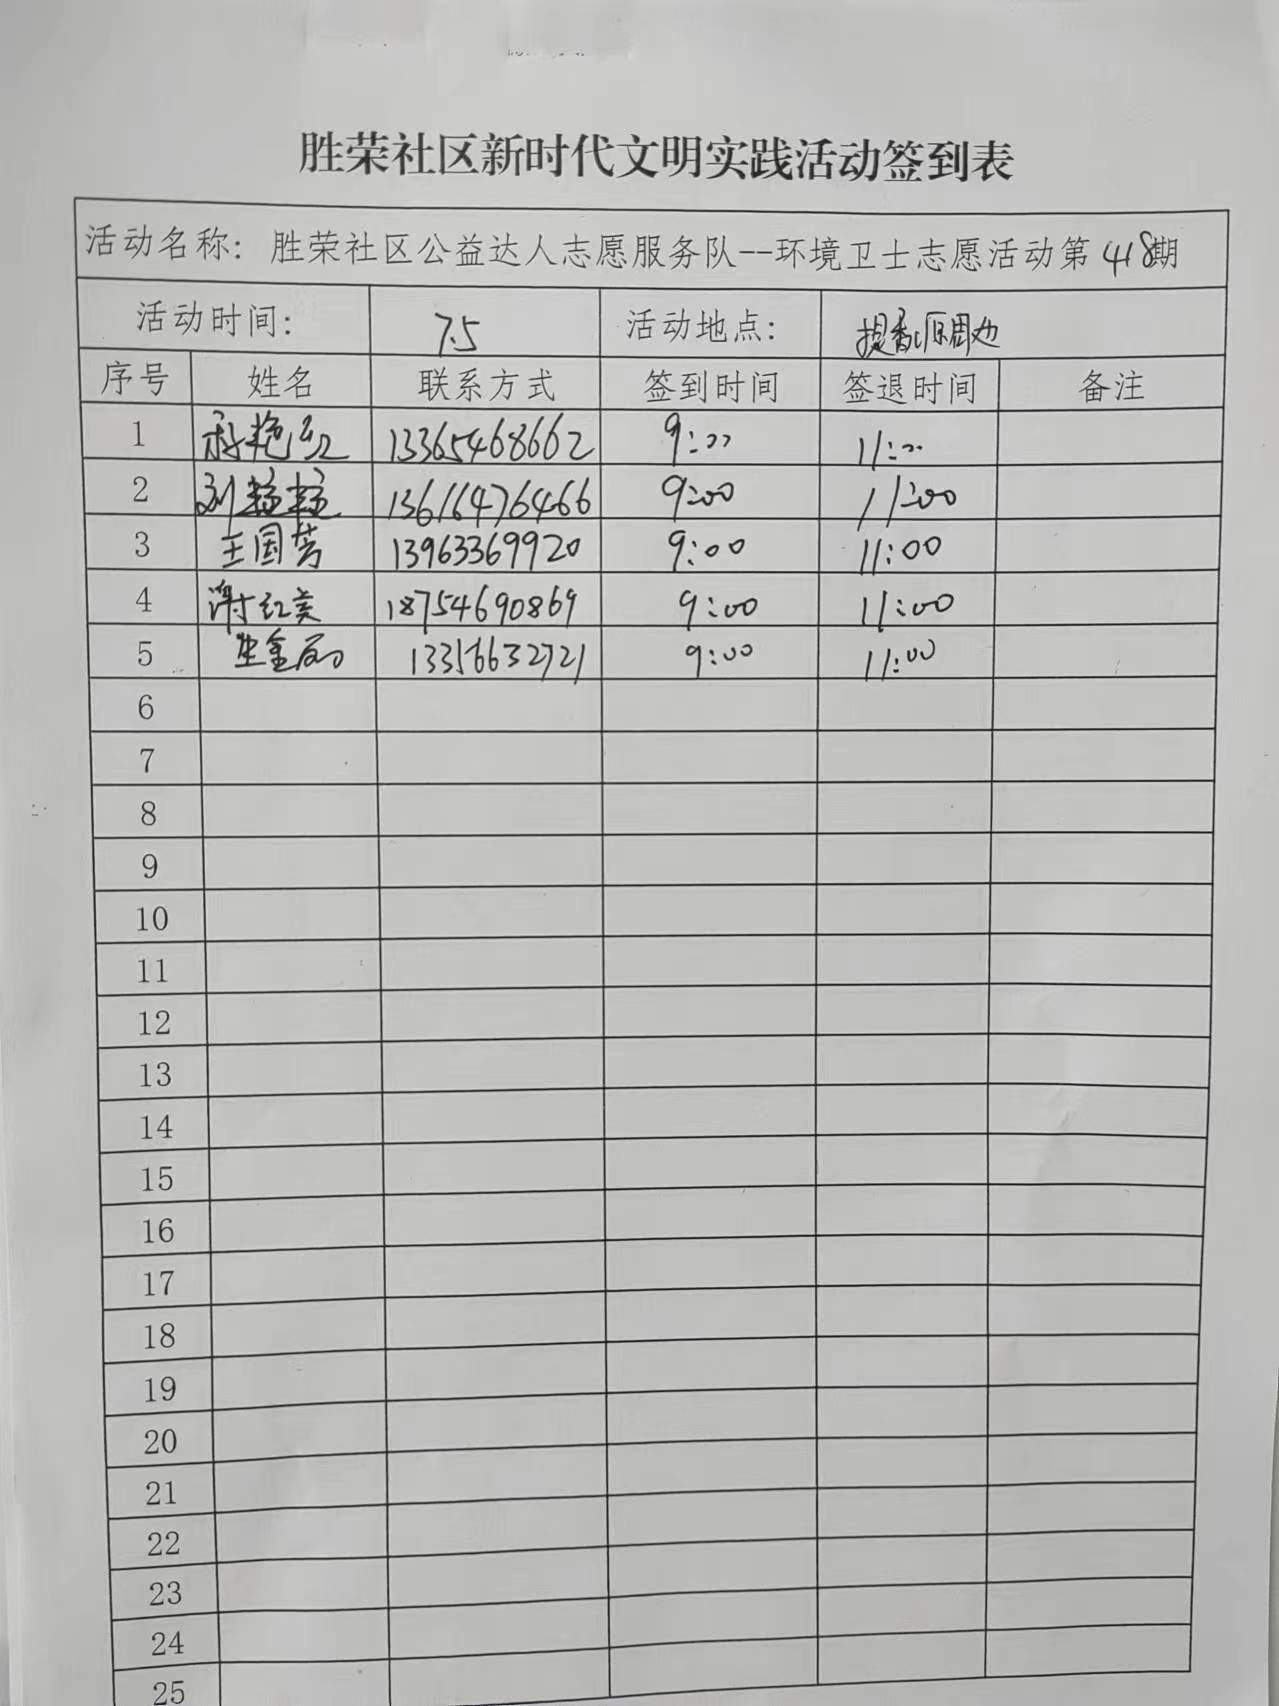 胜荣社区新时代文明实践活动签到表
活动名称：胜荣社区公益达人志愿服务队--环境卫士志愿活动第418期
活动时间： 7.5 活动地点： 周边
序号 姓名 联系方式 签到时间 签退时间 备注
1 艳红 13365468662 9:00 11:00
2 刘 13616476466 9:00 11:00
3 王国芳 13963369920 9:00 11:00
4 谢红美 18754690869 9:00 11:00
5 金 13356632721 9:00 11:00
6
7
8
9
10
11
12
13
14
15
16
17
18
19
20
21
22
23
24
25